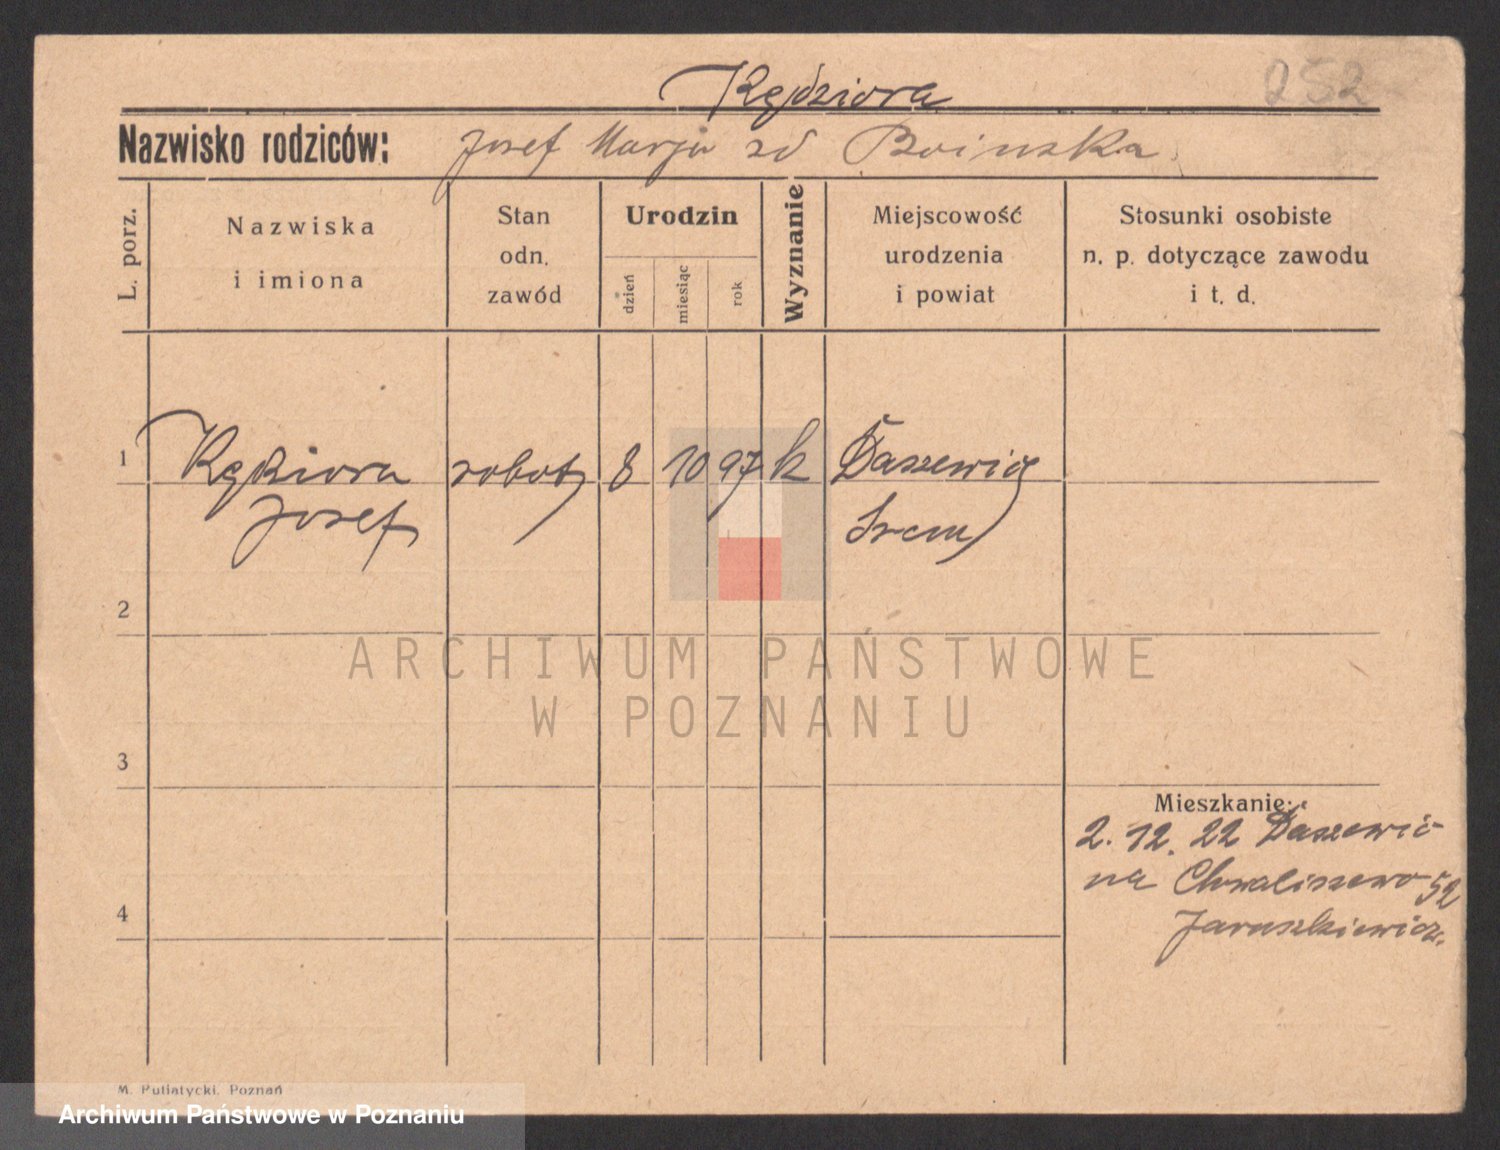 Kędziora
252
Nazwisko rodziców: Josef Marja zd Boinska
L. porz.
Nazwiska
i imiona
Stan
odn.
zawód
Urodzin
dzień
miesiąc
rok
Wyznanie
Miejscowość
urodzenia
i powiat
Stosunki osobiste
n. p. dotyczące zawodu
i t. d.
1 Kędziora robot 8 10 97 k Daszewic
Josef Srem
2
3
Mieszkanie:
2. 12. 22 Daszewic
na Chwaliszewo 52
4
Jaruszkiewicz.
M. Putiatycki, Poznań
ARCHIWUM PAŃSTWOWE
W POZNANIU
Archiwum Państwowe w Poznaniu